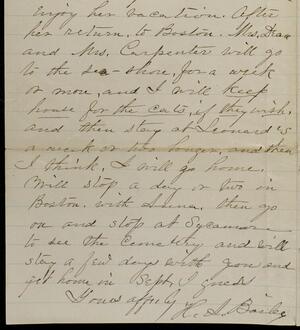 enjoy her vacation. After
her return, to Boston. Mrs. Dean
and Mrs. Carpenter will go
to the sea-shore, for a week
or more, and I will keep
house for the cats, if they wish.
and then stay at Leonard's
a week or two longer, and then
I think, I will go home.
Will stop a day or two in
Boston. with Anna. then go
on and stop at Sycamore
to see the Cemetery and will
stay a few days with you and
get home in Sept, I guess
Yours affec'ly H. S. Bailey